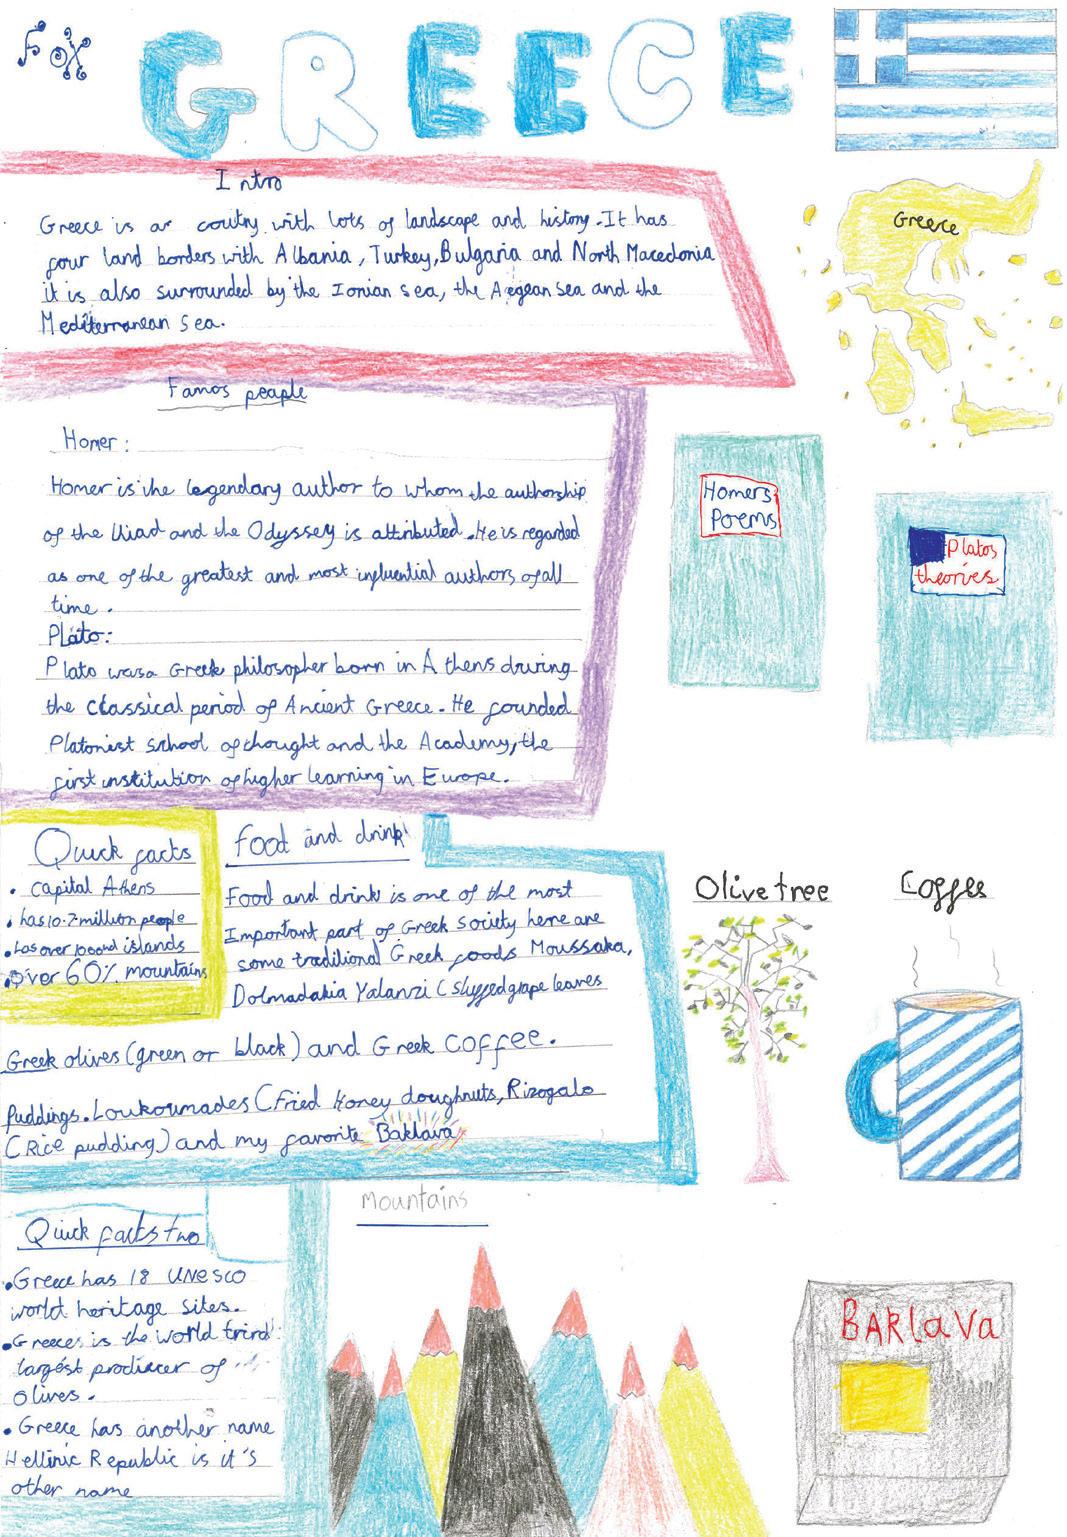 Fox
GREECE
Intro
Greece
Greece is ar coutry with lots of landscape and history. It has
four land borders with Albania, Turkey, Bulgaria and North Macedonia
it is also surrounded by the Ionian sea, the Aegean sea and the
Mediterranean sea.
Famos people
Homer:
Homer is the legendary author to whom the authorship
of the Iliad and the Odyssey is attributed. He is regarded
as one of the greatest and most influential authors of all
time.
Plato:
Plato was a Greek philosopher born in Athens during
the classical period of Ancient Greece. He founded
Platonist school of thought and the Academy, the
first institution of higher learning in Europe.
Homers
Poems
Platos
theories
Quick facts
• capital Athens
• has 10.7 million people
• has over islands
• Over 60% mountains
food and drink
Food and drink is one of the most
Important part of Greek society here are
some traditional Greek foods Moussaka,
Dolmadakia Yalanzi (stuffed grape leaves
Greek olives (green or black) and Greek coffee.
puddings. Loukoumades (Fried Honey doughnuts, Rizogalo
(Rice pudding) and my favorite Baklava
Olive tree
Coffee
Quick facts two
• Greece has 18 UNESCO
world heritage sites.
• Greeces is the world
largest producer of
olives.
• Greece has another name
Hellinic Republic is it's
other name
Mountains
BARLAVA